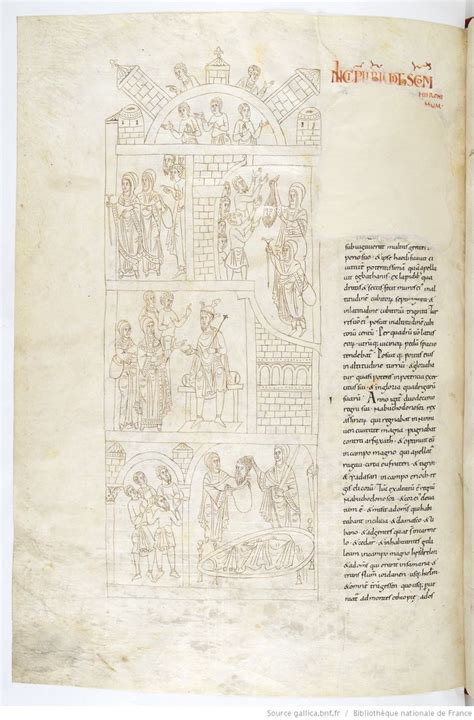 INCIP LIBER IUDIT SCDM
subiugauerat multas gentes im
perio suo · & ipse hedificauit ci
uitatem potentissimā quā appella
uit egbathanis · ex lapidib; qua
dratis & sectis · fecit muros ei; in al
titudine cubitorū septuaginta &
in latitudine cubitorū triginta · Tur
res uero ei; posuit in altitudine cubi
torū centū · Per quadrū ū latus
pedū spacio
tendebat · Posuitq; portas ei;
in altitudine turriū · & gloriaba
tur quasi potens in potentia exer
citus sui · & in gloria quadrigarū
suarū · Anno igit duodecimo
regni sui · Nabuchodonosor rex
assirioꝝ · qui regnabat in niniue
en ciuitate magna · pugnabat
contra arfaxath · & optinuit eū
in campo magno qui appellat
ragau · circa eufraten & tigrin
& iadasan in campo erioch re
gis elicorū · Tunc exaltatū ē regnū
Nabuchodonosor · & cor ei; eleua
tum ē · & misit ad oms qui habi
tabant in cilicia & damasco & li
bano · & ad gentes que st in carme
lo & cedar · & inhabitantes gali
leam in campo magno hesdrelon ·
& ad oms qui erant in samaria &
trans flumē iordanen usq; hierlm
& omnē terrā gessen quousq; pue
niat ad montes ethiopie · ad os
Source gallica.bnf.fr / Bibliothèque nationale de France